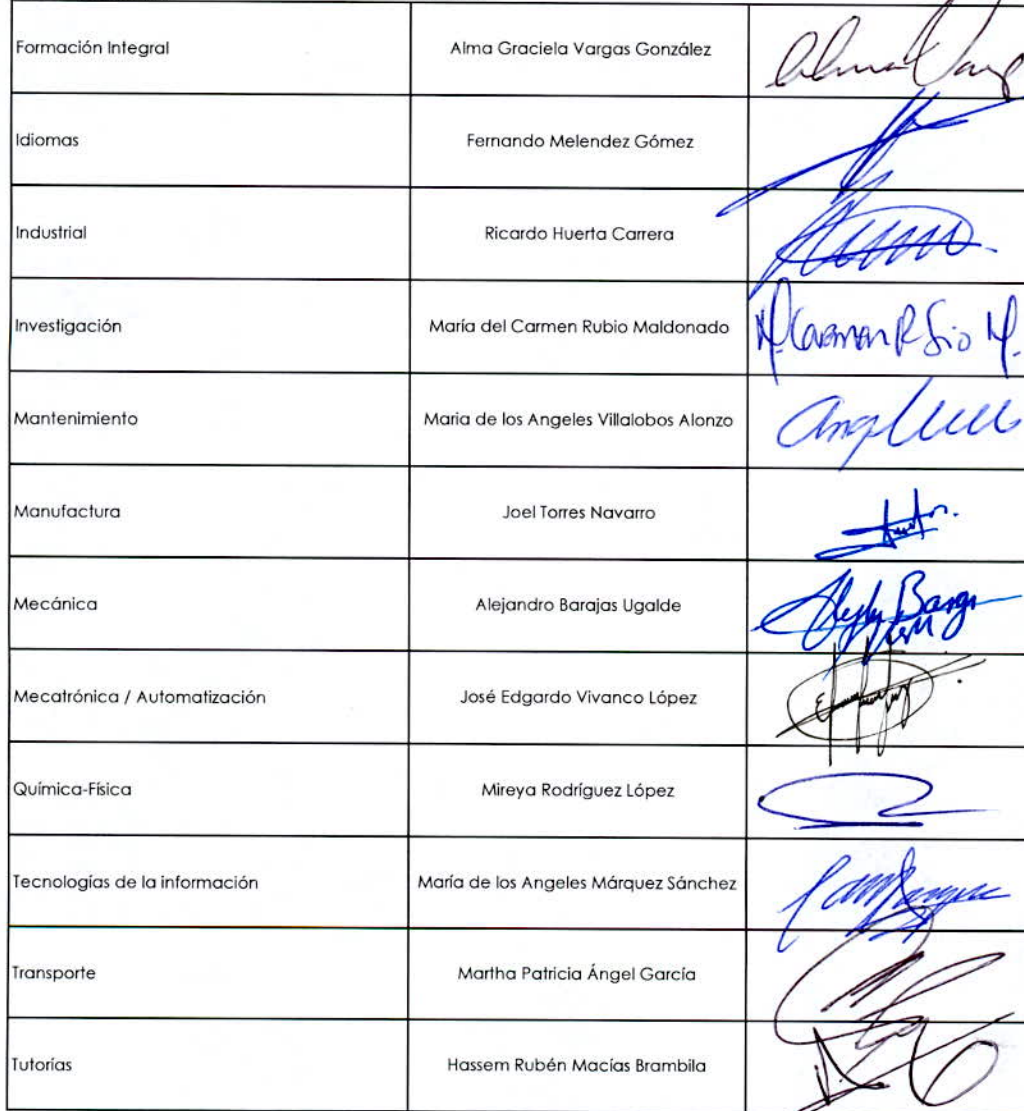 Formación Integral Alma Graciela Vargas González
Idiomas Fernando Melendez Gómez
Industrial Ricardo Huerta Carrera
Investigación María del Carmen Rubio Maldonado
Mantenimiento Maria de los Angeles Villalobos Alonzo
Manufactura Joel Torres Navarro
Mecánica Alejandro Barajas Ugalde
Mecatrónica / Automatización José Edgardo Vivanco López
Química-Física Mireya Rodríguez López
Tecnologías de la información María de los Angeles Márquez Sánchez
Transporte Martha Patricia Ángel García
Tutorías Hassem Rubén Macías Brambila